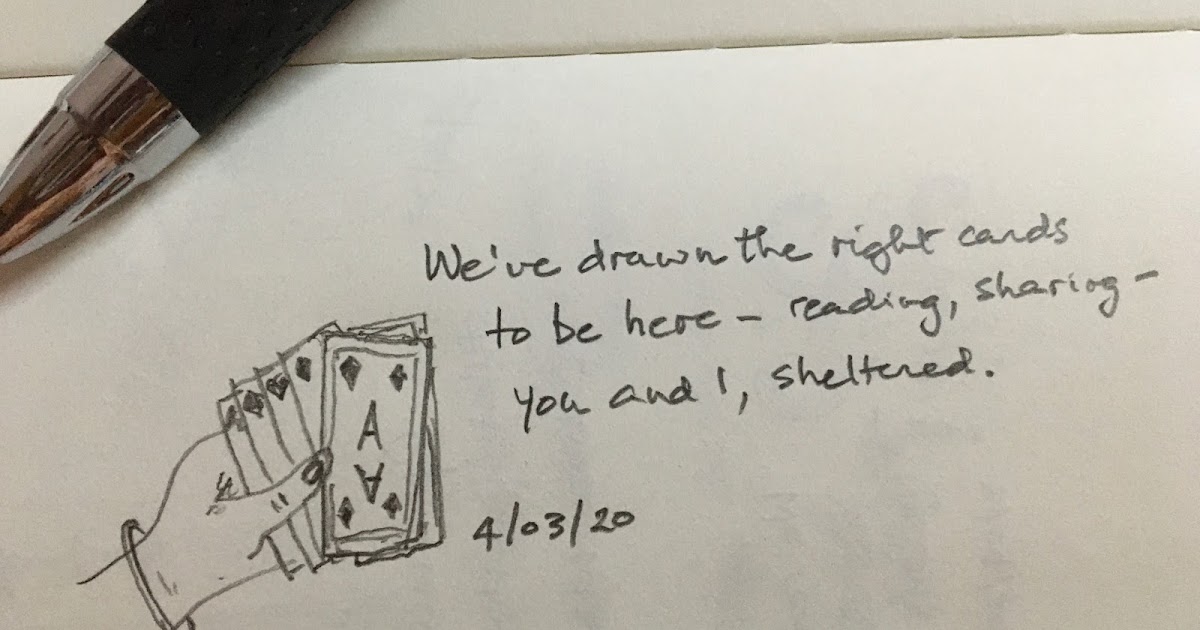 We've drawn the right cards
to be here – reading, sharing –
you and I, sheltered.
A
A
4/03/20